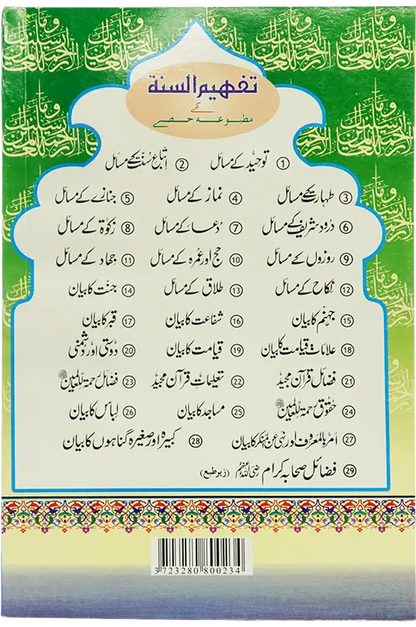 تفہیم السنۃ
کے
مطبوعہ حصے
① توحید کے مسائل ② اتباع سنت کے مسائل
③ طہارت کے مسائل ④ نماز کے مسائل ⑤ جنازے کے مسائل
⑥ درود شریف کے مسائل ⑦ دعا کے مسائل ⑧ زکوٰۃ کے مسائل
⑨ روزوں کے مسائل ⑩ حج اور عمرہ کے مسائل ⑪ جہاد کے مسائل
⑫ نکاح کے مسائل ⑬ طلاق کے مسائل ⑭ جنت کا بیان
⑮ جہنم کا بیان ⑯ شفاعت کا بیان ⑰ قبر کا بیان
⑱ علامات قیامت کا بیان ⑲ قیامت کا بیان ⑳ دوستی اور دشمنی
㉑ فضائل قرآن مجید ㉒ تعلیمات قرآن مجید ㉓ فضائل رحمۃ للعالمین ﷺ
㉔ حقوق رحمۃ للعالمین ﷺ ㉕ مساجد کا بیان ㉖ لباس کا بیان
㉗ امر بالمعروف اور نہی عن المنکر کا بیان ㉘ کبیرہ اور صغیرہ گناہوں کا بیان
㉙ فضائل صحابہ کرام رضی اللہ عنہم (زیر طبع)
3723280800234